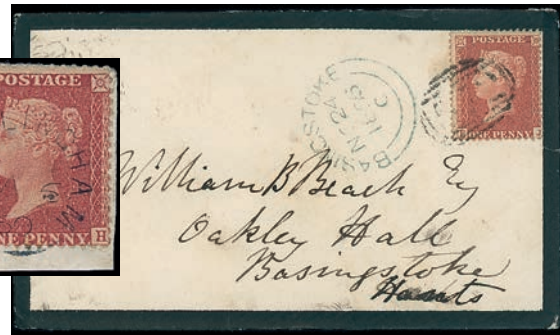 POSTAGE
ONE PENNY
H
POSTAGE
ONE PENNY
BASINGSTOKE
NO 24
William B Beach Esq
Oakley Hall
Basingstoke
Hants